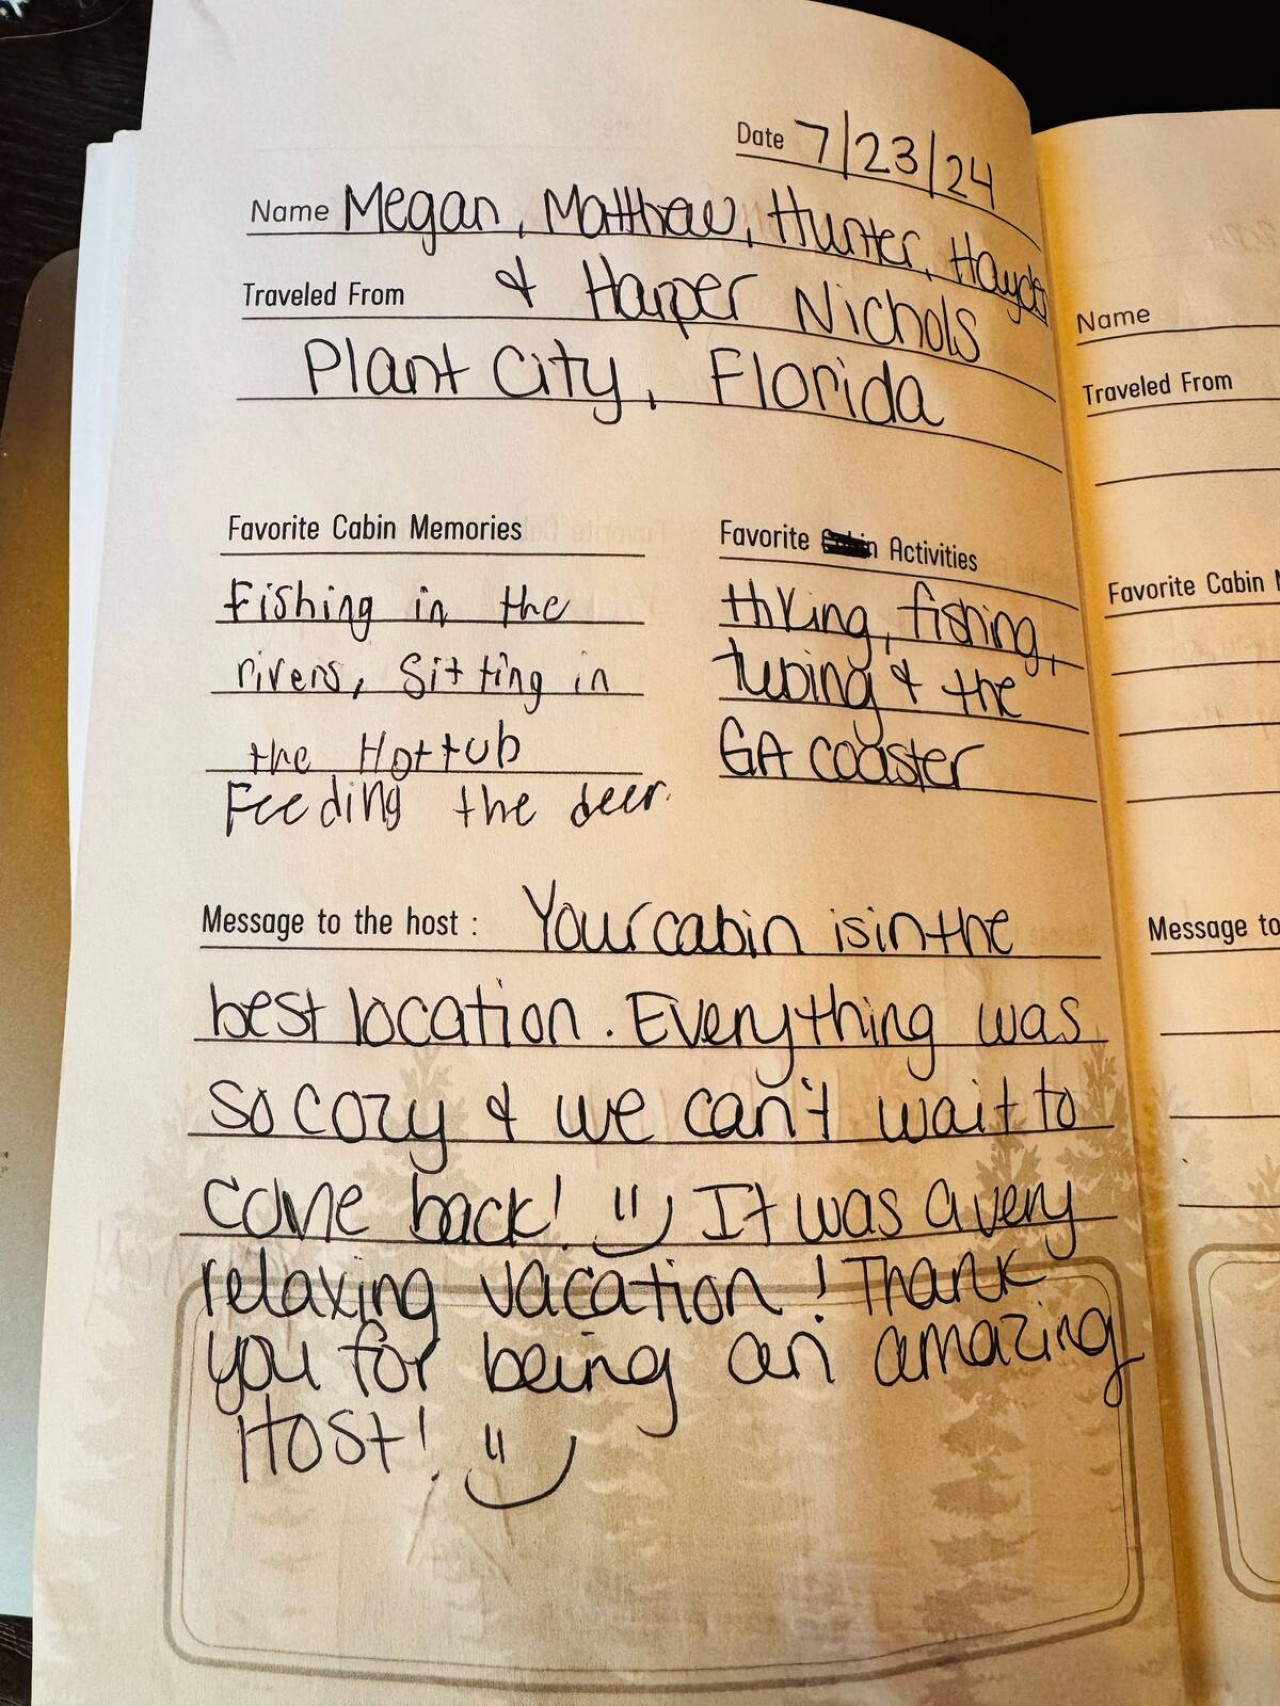 Date 7/23/24
Name Megan, Matthew, Hunter, Hayden
Traveled From & Harper Nichols
Plant City, Florida
Favorite Cabin Memories
Fishing in the
rivers, Sitting in
the Hot tub
Feeding the deer.
Favorite Cabin Activities
Hiking, fishing,
tubing & the
GA coaster
Message to the host : Your cabin is in the
best location. Everything was
so cozy & we can't wait to
come back! It was a very
relaxing vacation! Thank
you for being an amazing
Host!
Name
Traveled From
Favorite Cabin
Message to